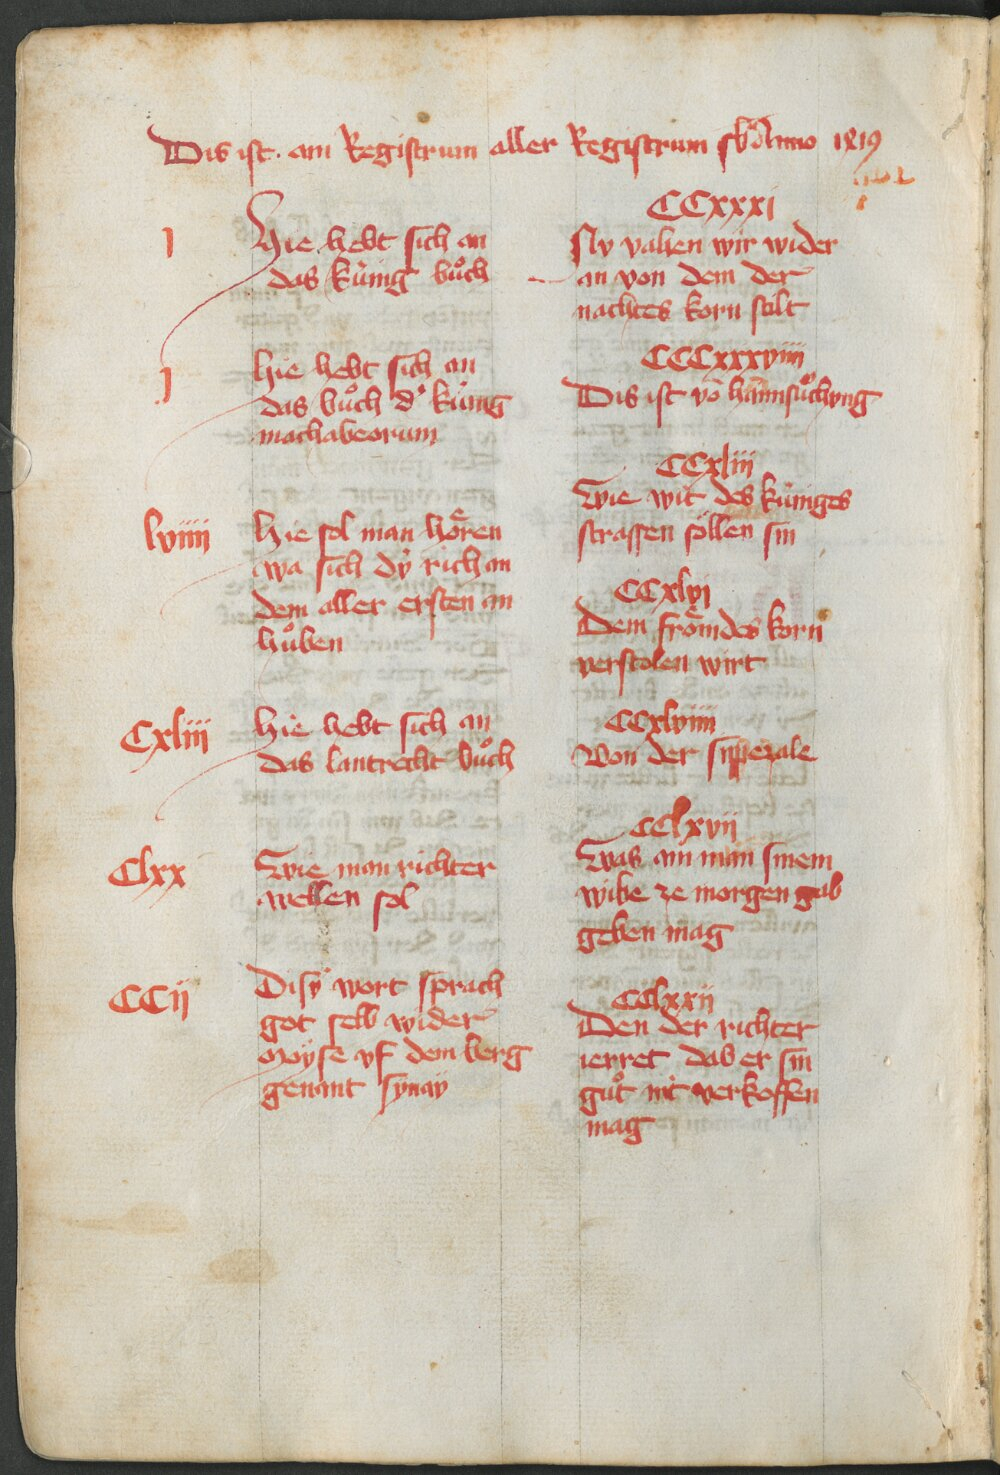 Dis ist ain Registrum aller Registrum Anno 1419
I
Hie hebt sich an
das kúnig bůch
I
hie hebt sich an
das bůch d' kúnig
machabeorum
lviiii
hie sol man hôren
wa sich dÿ rich an
dem aller ersten an
hůben
Cxliii
hie hebt sich an
das lantrecht bůch
Clxx
Wie man richter
wellen sol
CCij
Disÿ wort sprach
got selb wider
Moÿse vf dem berg
genant sÿnaÿ
CCxxxi
Nv vahen wir wider
an von dem der
nachtes korn stilt
CCCxxxviiii
Dis ist võ haimsůchvng
CCxliii
Wie wit des kúniges
strassen sôllen sin
CCxlvi
Dem frômdes korn
verstolen wirt
CCxlviiii
Von der
CClxvii
Was ain man sinem
wibe ze morgen gab
geben mag
CClxxii
Den der richter
ierret das er sin
gůt nit verkoffen
mag